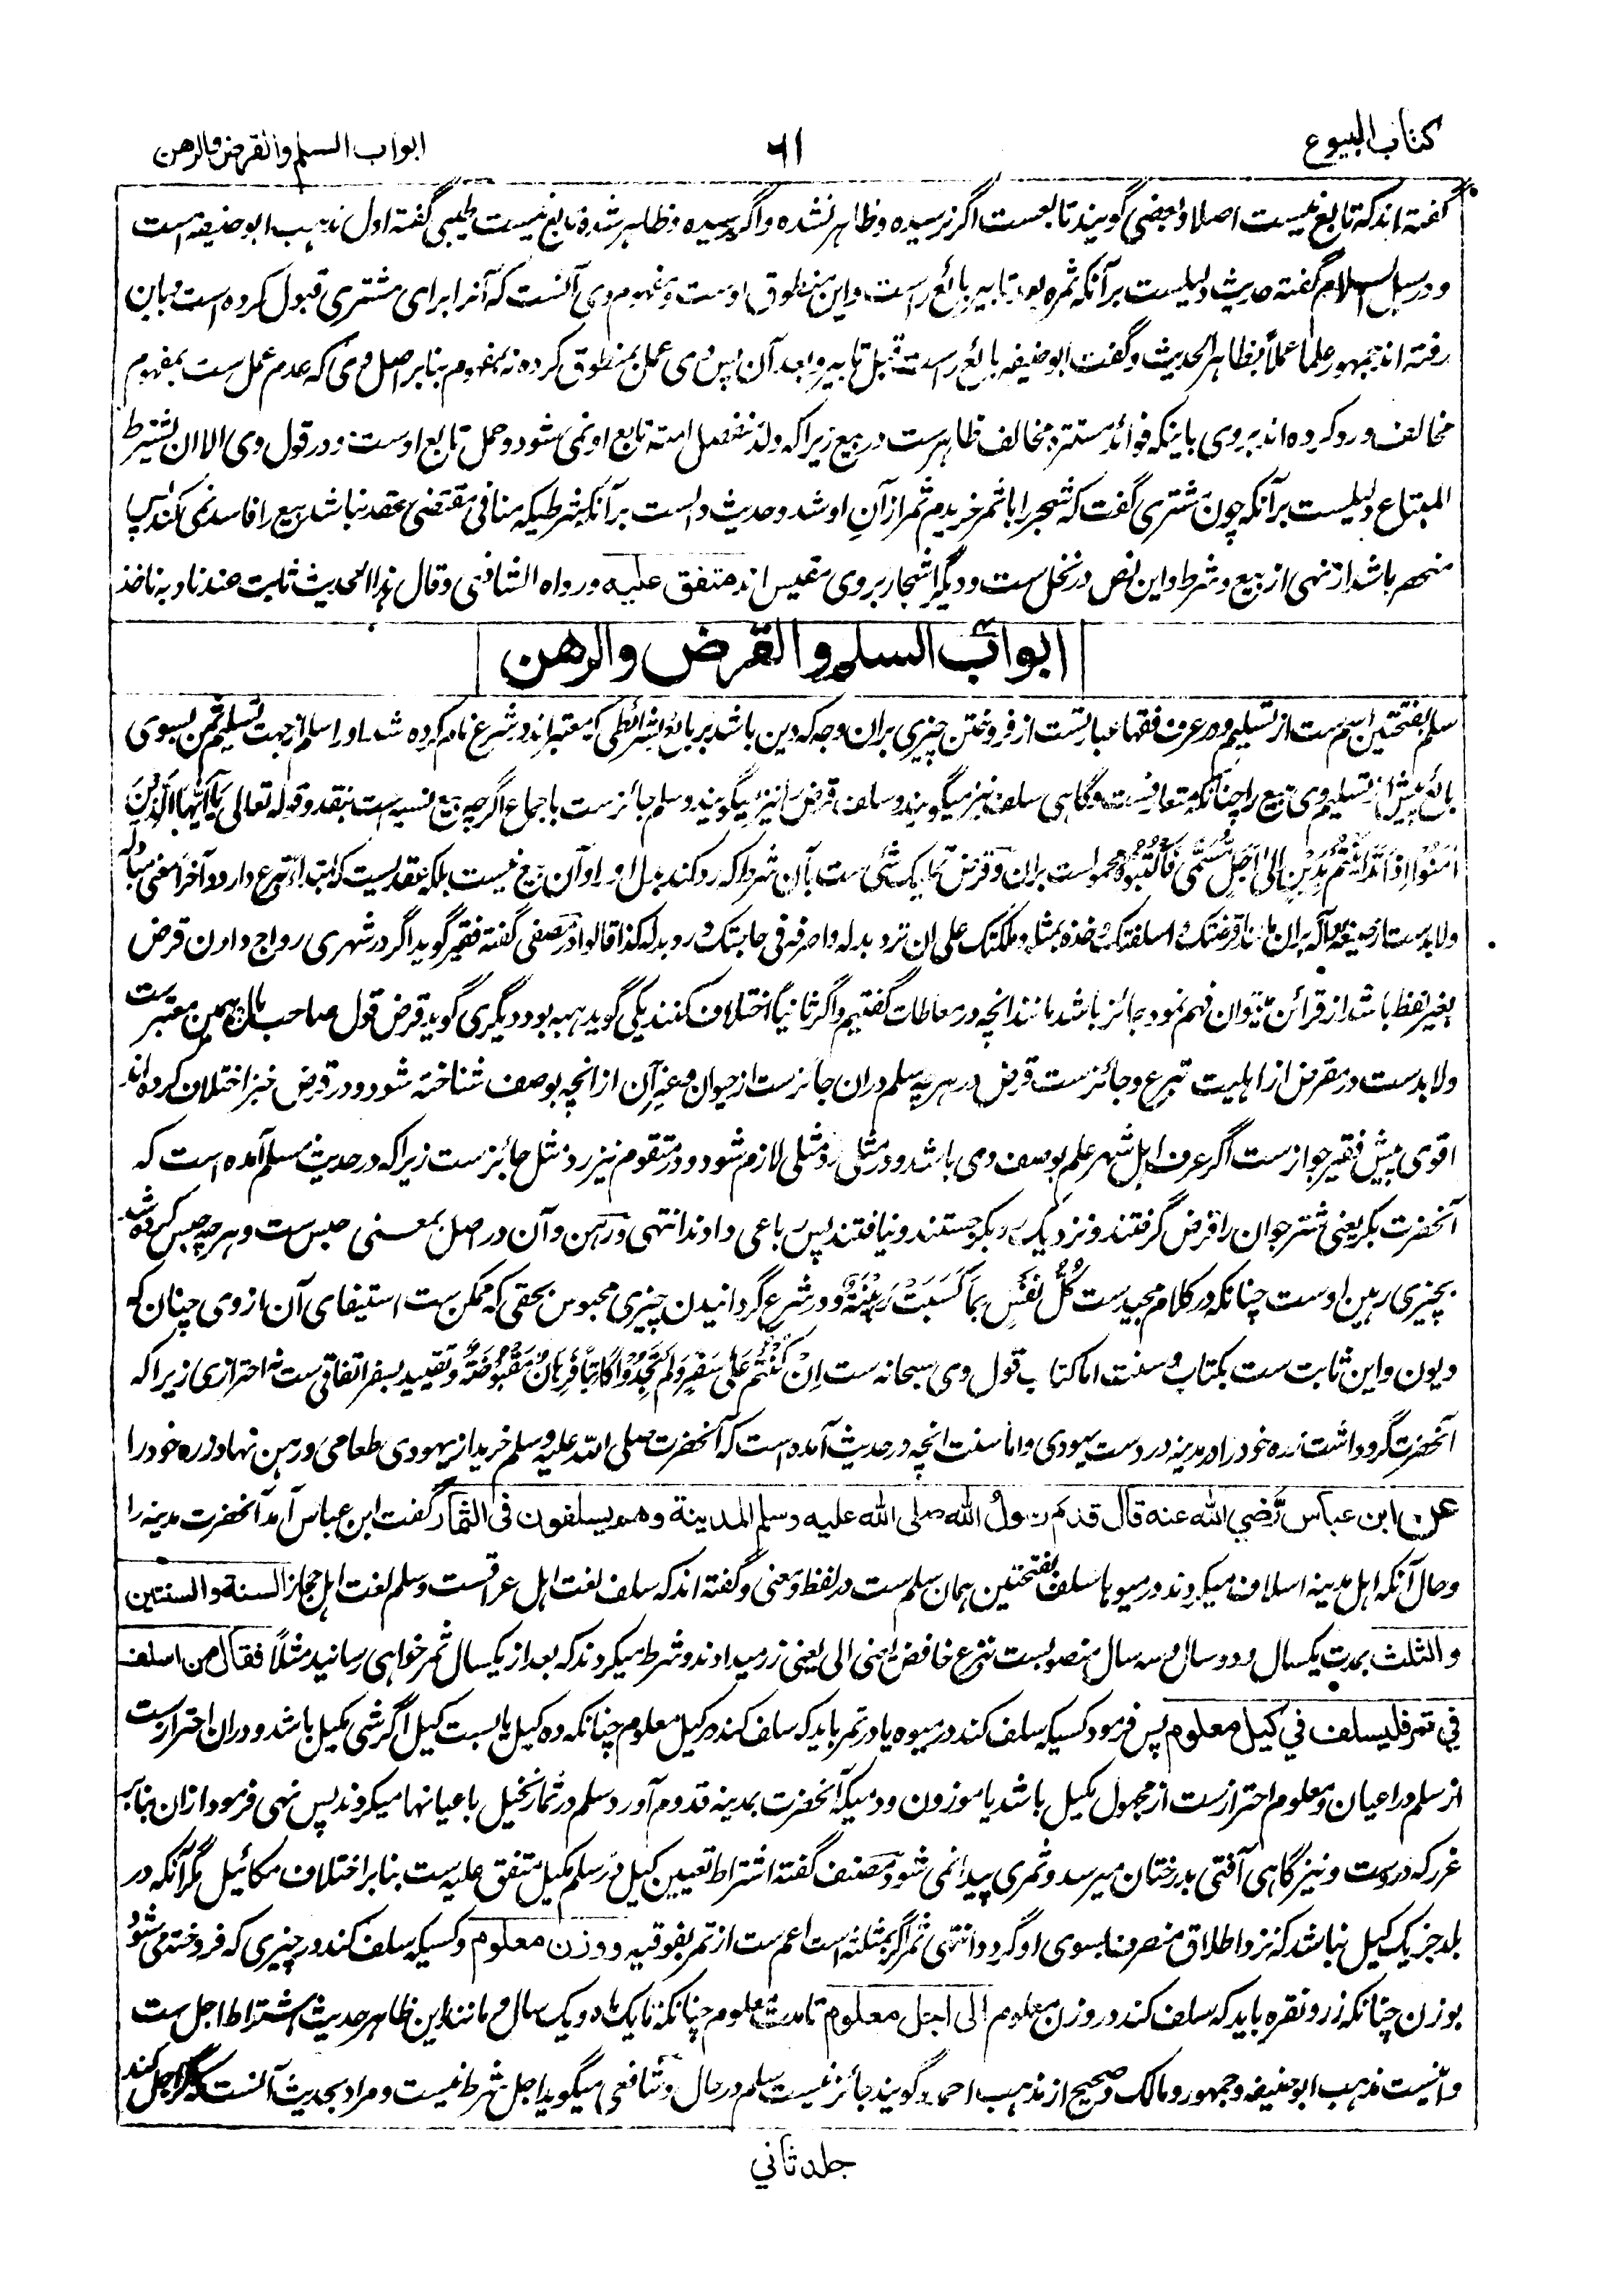 کتاب البیوع
۶۱
ابواب السلم والقرض والرهن
گفته اند که تابع نیست اصلا و بعضی گویند تابعست اگر نرسیده و ظاهر نشده و اگر رسیده و ظاهر شده تابع نیست طیبی گفته اول مذهب ابو حنیفه است
و در سبل السلام گفته حدیث دلیلست بر آنکه ثمره بعد تابیر بائع راست و این منطوق اوست و مفهوم وی آنست که آنرا برای مشتری قبول کرده است و باین
رفته اند جمهور علما عملاً بظاهر الحدیث و گفت ابو حنیفه بائع راست قبل تابیر و بعد آن پس وی عمل بمنطوق کرده نه بمفهوم بنا بر اصل وی که عدم عمل ست بمفهوم
مخالف و رد کرده اند بروی باینکه فوائد مستتره مخالف ظاهرست در بیع زیرا که ولد منفصل امته تابع او نمی شود و حمل تابع اوست و در قول وی الا ان یشترط
المبتاع دلیلست بر آنکه چون مشتری گفت که شجر را با ثمر خریدم ثمر از آن او شد و حدیث دالست بر آنکه شرطیکه منافی مقتضی عقد نباشد بیع را فاسد نمی کند پس
باشد از نهی از بیع و شرط و این نص در نخل ست و دیگر اشجار بروی مقیس اند متفق علیه و رواه الشافعی و قال هذا الحدیث ثابت عندنا و به ناخذ
ابواب السلم والقرض والرهن
سلم بفتحتین اسم ست از تسلیم و در عرف فقها عبارتست از فروختن چیزی بران وجه که دین باشد بر بائع بشرائطی که معتبر اند در شرع نام کرده شد او را سلم از جهت تسلیم ثمن بسوی
بائع پیش از تسلیم وی مبیع را چنانکه متعارفست و گاهی سلف نیز میگویند و سلف قرض را نیز میگویند و سلم جائزست باجماع اگرچه بیع نسیه است بنقد و قوله تعالی یَا أَیُّهَا الَّذِیْنَ
اٰمَنُوْا اِذَا تَدَایَنْتُمْ بِدَیْنٍ اِلٰی اَجَلٍ مُّسَمًّی فَاکْتُبُوْهُ محمول ست بران و قرض تملیک شئی ست بآن شرط که رد کند بدل او را و آن بیع نیست بلکه عقدیست که ابتداءً تبرع دارد و آخراً معنی مبادله
ولا بدست از صیغه داله بران مانند اقرضتک و اسلفتک و خذه بمثله و ملکتک علی ان ترد بدله و اصرفه فی حاجتک و رد بدله کذا قالوا در مصفی گفته فقیر گوید اگر در شهری رواج دادن قرض
بغیر لفظ باشد از قرائن میتوان فهم نمود جائز باشد مانند انچه در معاطات گفتیم و اگر ثانیاً اختلاف کنند یکی گوید هبه بود و دیگری گوید قرض قول صاحب مال بیمین معتبر ست
ولا بدست در مقرض از اهلیت تبرع و جائزست قرض در هرچه سلم دران جائزست از حیوان و غیر آن از انچه بوصف شناخته شود و در قرض خبز اختلاف کرده اند
اقوی پیش فقیر جوازست اگر عرف اهل شهر علم بوصف وی باشد و در مثلی رد مثلی لازم شود و در متقوم نیز رد مثل جائزست زیرا که در حدیث مسلم آمده است که
آنحضرت بکر یعنی شتر جوان را قرض گرفتند و نزدیک رد بکر جستند و نیافتند پس رباعی دادند انتهی و رهن و آن در اصل بمعنی حبس ست و هرچه حبس کرده شد
بچیزی رهین اوست چنانکه در کلام مجید ست کُلُّ نَفْسٍ بِمَا کَسَبَتْ رَهِیْنَةٌ و در شرع گردانیدن چیزی محبوس بحقی که ممکن ست استیفای آن از وی چنان که
دیون و این ثابت ست بکتاب و سنت اما کتاب قول وی سبحانه ست اِنْ کُنْتُمْ عَلٰی سَفَرٍ وَّلَمْ تَجِدُوْا کَاتِبًا فَرِهَانٌ مَّقْبُوْضَةٌ و تقیید بسفر اتفاقی ست نه احترازی زیرا که
آنحضرت گرو داشت زره خود را در مدینه در دست یهودی و اما سنت انچه در حدیث آمده است که آنحضرت صلی الله علیه وسلم خرید از یهودی طعامی و رهن نهاد زره خود را
عن ابن عباس رضی الله عنه قال قدم رسول الله صلی الله علیه وسلم المدینة وهم یسلفون فی الثمار گفت ابن عباس آمد آنحضرت مدینه را
و حال آنکه اهل مدینه اسلاف میکردند در میوها سلف بفتحتین همان سلم ست در لفظ و معنی و گفته اند که سلف لغت اهل عراقست و سلم لغت اهل حجاز السنة والسنتین
والثلث بمدت یکسال و دو سال و سه سال منصوبست بنزع خافض یعنی الی یعنی زر میدادند و شرط میکردند که بعد از یکسال ثمر خواهی رسانید مثلاً فقال من اسلف
فی تمر فلیسلف فی کیل معلوم پس فرمود کسیکه سلف کند در میوه یا در تمر باید که سلف کند در کیل معلوم چنانکه ده کیل یا بست کیل اگر شی مکیل باشد و دران احترازست
از سلم در اعیان و معلوم احترازست از مجهول مکیل باشد یا موزون و دمیکه آنحضرت بمدینه قدوم آورد سلم در ثمار نخیل باعیانها میکردند پس نهی فرمود ازان بنابر
غرر که دروست و نیز گاهی آفتی بدرختان میرسد و ثمری پیدا نمی شود مصنف گفته اشتراط تعیین کیل در سلم مکیل متفق علیه ست بنا بر اختلاف مکائیل مگر آنکه در
بلد جز یک کیل نباشد که نزد اطلاق منصرف بسوی او گردد انتهی ثمر اگر بمثلثه است اعم ست از تمر بفوقیه و وزن معلوم و کسیکه سلف کند در چیزی که فروخته می شود
بوزن چنانکه زر و نقره باید که سلف کند در وزن معلوم الی اجل معلوم تا مدت معلوم چنانکه تا یک ماه و یک سال و مانند این ظاهر حدیث اشتراط اجل ست
و اینست مذهب ابو حنیفه و جمهور و مالک و صحیح از مذهب احمد و گویند جائز نیست سلم در حال و شافعی میگوید اجل شرط نیست و مراد بحدیث آنست که اگر اجل کند
جلد ثانی